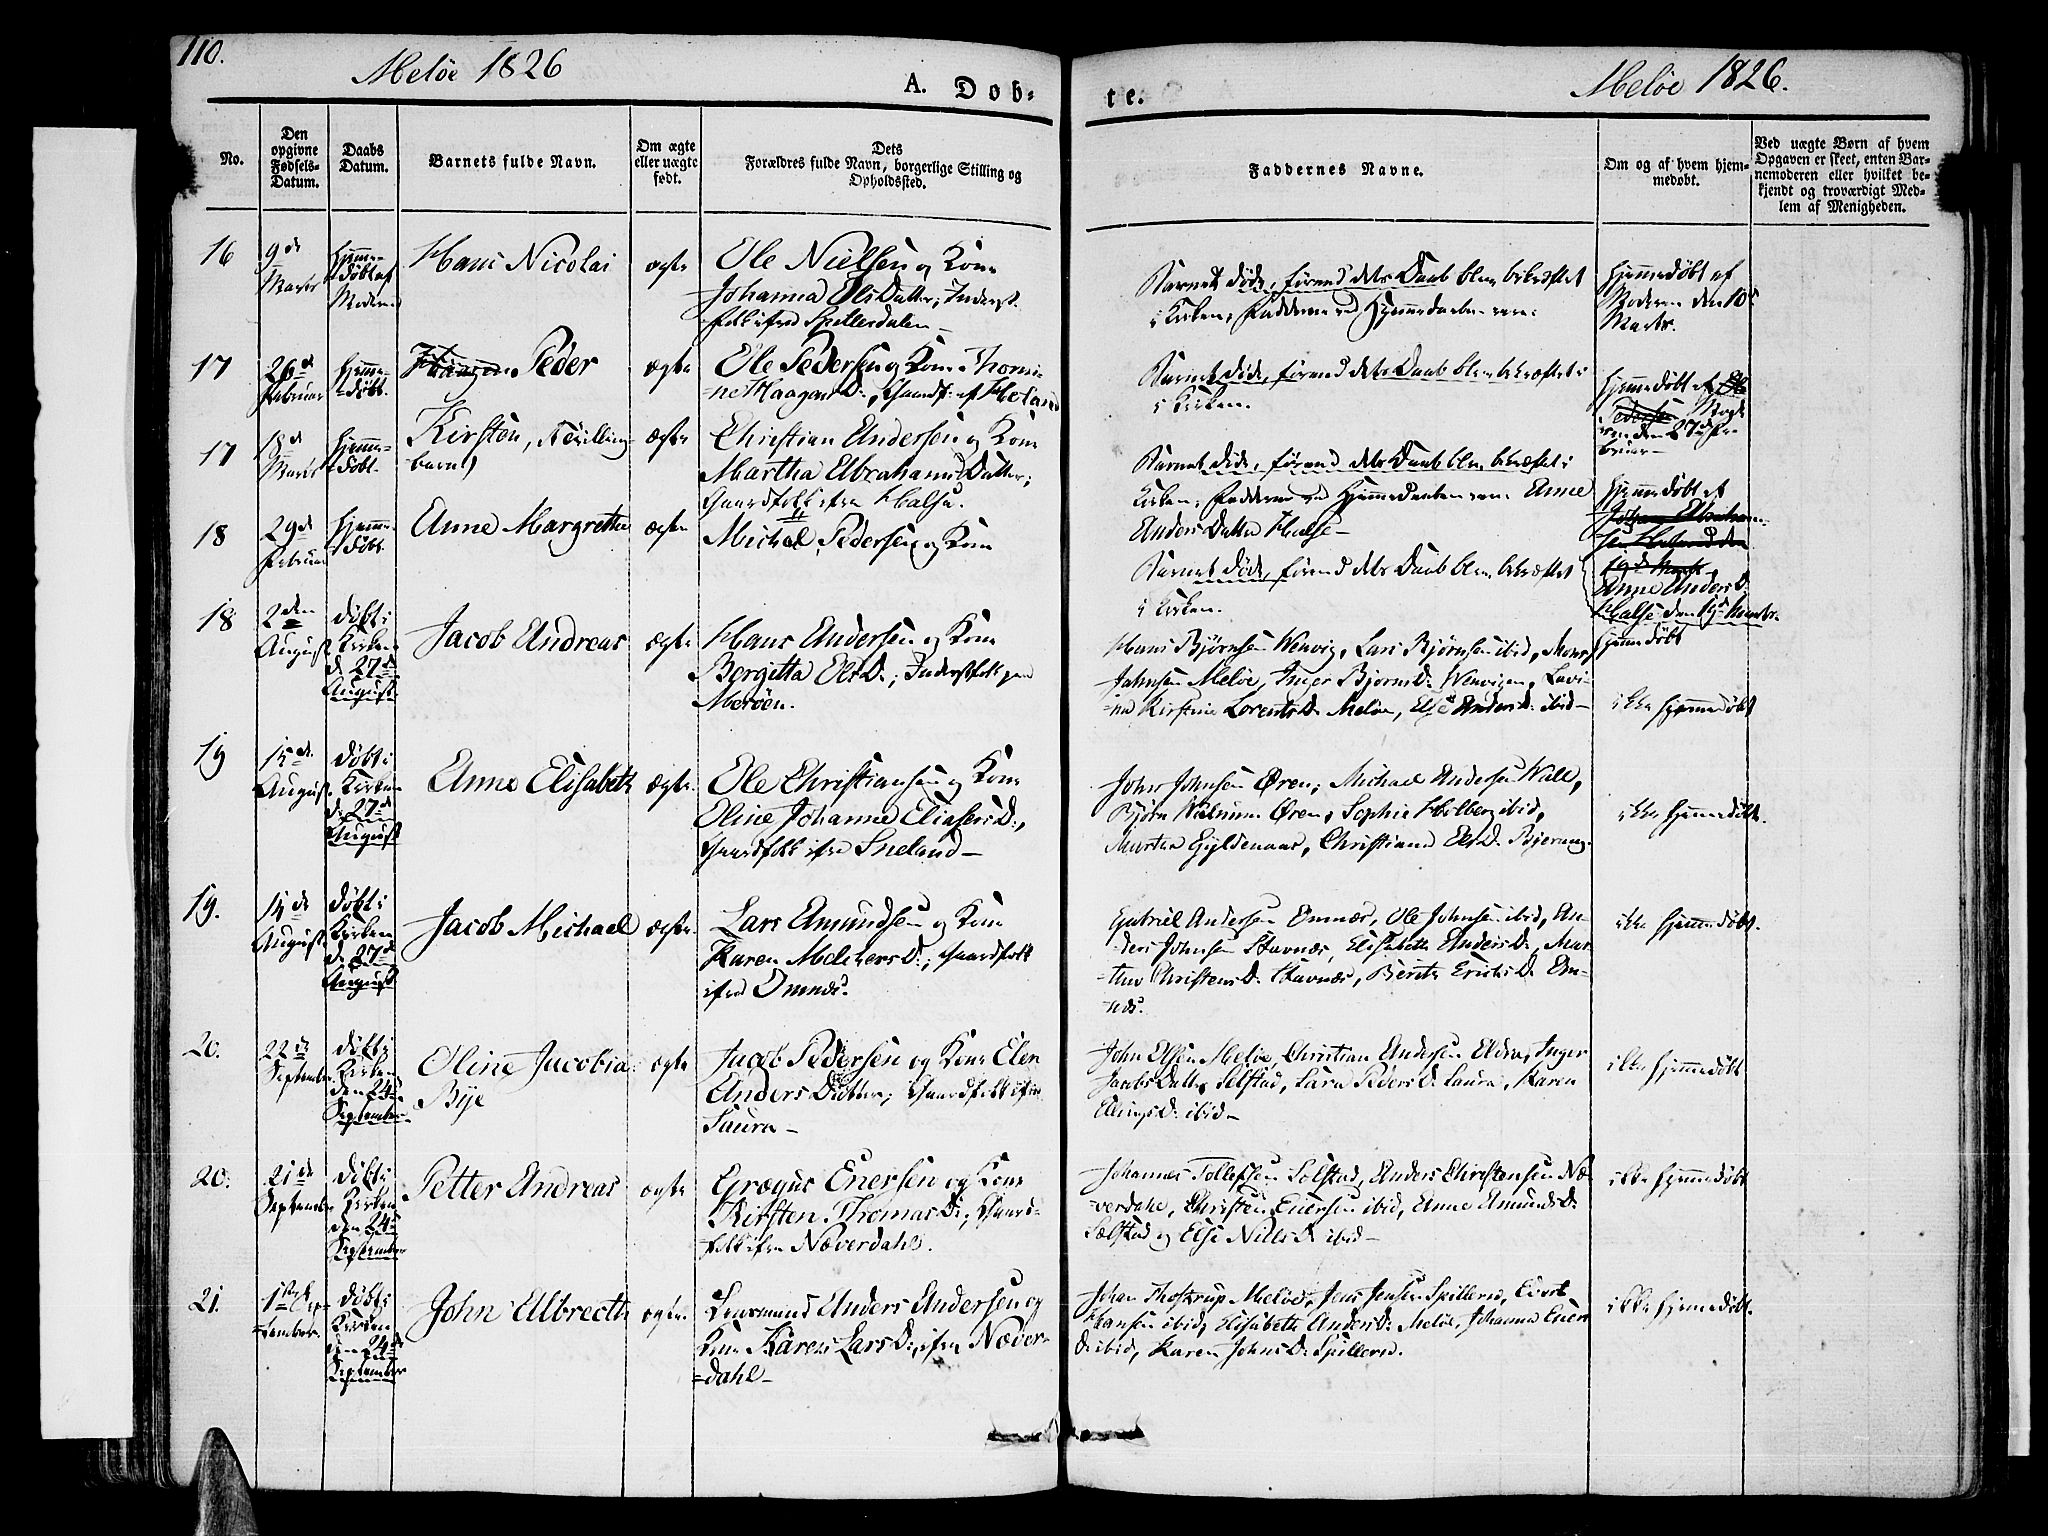 110.
Meløe 1826
A. Døb-
te.
Meløe 1826.
No.
Den
opgivne
Fødsels-
Datum.
Daabs
Datum.
Barnets fulde Navn.
Om ægte
eller uægte
født.
Dets
Forældres fulde Navn, borgerlige Stilling og
Opholdssted.
Faddernes Navne.
Om og af hvem hjem-
medøbt.
Ved uægte Børn af hvem
Opgaven er skeet, enten Bar-
nemoderen eller hvilket be-
kjendt og troværdigt Med-
lem af Menigheden.
16
9de
Marts
Hjemme-
døbt af
Moderen
Hans Nicolai
ægte
Ole Nielsen og Kone
Johanna Ols Datter, Inderst-
folk ifra Spillerdalen —
Barnet døde, førend dets Daab blev bekræftet
i Kirken, Faddere ved Hjemmedaaben vare:
Hjemmedøbt af
Moderen den 10de
Marts.
17
26de
Februar
Hjemme-
døbt.
Peder
ægte
Ole Pedersen og Kone Thomi-
ne Haagens D., Gaardf: af Meland
Barnet døde, førend dets Daab blev bekræftet i
Kirken.
Hjemmedøbt af Ole
Pedersen
den 27de Fe-
bruar —
17
18de
Marts
Hjemme-
døbt.
Kirsten, Tvilling-
barn
ægte
Christian Andersen og Kone
Martha Abrahams Datter;
Gaardfolk ifra Halsa.
Barnet døde, førend dets Daab blev bekræftet i
Kirken; Faddere ved Hjemmedaaben vare Anne
Anders Datter Halse —
Hjemmedøbt af
Anne Anders D.
Halse den
18
29de
Februar
Hjemme-
døbt
Anne Margretha
ægte
Michel Pedersen og Kone
Barnet døde, førend dets Daab blev bekræftet
i Kirken.
hjemmedøbt
18
2den
August
døbt i
Kirken
d. 27de
August
Jacob Andreas
ægte
Hans Andersen og Kone
Bergitta Ols D.; Inderstfolk paa
Merøen.
Hans Bjørnsen Wenvig, Lars Bjørnsen ibid,
Johnsen Meløe, Inger Bjørns D. Wenvigen, Lovi-
na Kirstine Lorents D. Meløe, Else Anders D. ibid —
ikke hjemmedøbt
19
15de
August
døbt i
Kirken
d. 27de
August
Anne Elisabeth
ægte
Ole Christiansen og Kone
Oline Johanne Eliasers D.,
Gaardfolk ifra Sneland —
John Johnsen Øren, Michael Andersen Wall,
Bjørn Øren, Sophie Holberg ibid,
Martha Gyldenaas, Christiana Ols D. Bjerang
ikke hjemmedøbt.
19.
14de
August
døbt i
Kirken
d. 27de
August
Jacob Michael
ægte
Lars Amundsen og Kone
Karen Melchers D.; Gaardfolk
ifra Omnæs.
Gabriel Andersen Omnæs, Ole Johnsen ibid, An-
ders Johnsen Stavnæs, Elisabeth Anders D., Mar-
tha Christens D. Stavnæs, Berith Erichs D. Om-
næs.
ikke hjemmedøbt.
20.
22de
September
døbt i
Kirken
den 24de
September
Oline Jacobia
Bye
ægte
Jacob Pedersen og Kone Elen
Anders Datter; Gaardfolk ifra
Saura —
John Olsen Meløe, Christian Andersen, Inger
Jacobs Datter Selstad, Sara Peders D. Saura, Karen
Elings D. ibid —
ikke hjemmedøbt
20.
21de
September
døbt i
Kirken
den 24de
September
Petter Andreas
ægte
Grægus Enersen og Kone
Kirsten Thomas D., Gaard-
folk ifra Næverdahl.
Johannes Tollefsen Selstad, Anders Christensen Næ-
verdahl, Christen Enersen ibid, Anne Amunds D.
Selstad og Else Niels D. ibid —
ikke hjemmedøbt
21.
1ste Sep-
tember.
døbt i
Kirken
den 24de
September
John Albrecth
ægte.
Lensmand Anders Andersen og
Kone Karen Lars D., ifra Næver-
dahl —
Johan Thostrup Meløe, Jens Jensen Spilleren, Evert
Hansen ibid, Elisabeth Anders D. Meløe, Johanna Eners
D. ibid, Karen Johns D. Spilleren.
ikke hjemmedøbt.